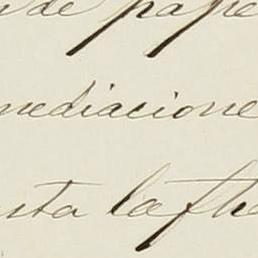 de pape
mediacione
sta la fhe